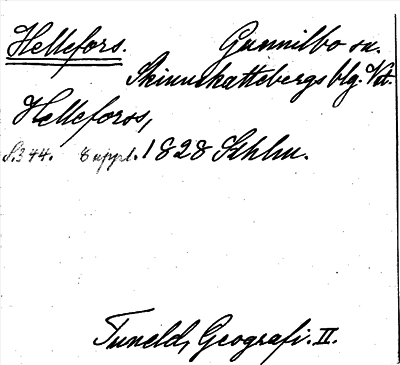 Hellefors. Gunnilbo sn.
Skinnskattebergs blg. Vst.
Helleforss,
S. 344. 8 uppl. 1828 Sthlm.
Tuneld, Geografi. II.